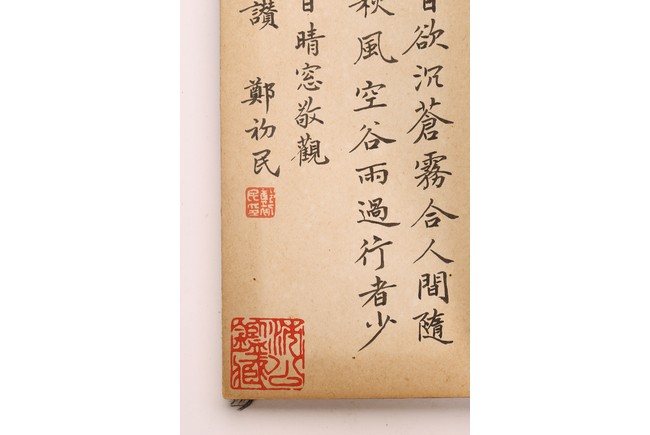 欲沉蒼霧合人間隨
秋風空谷雨過行者少
日晴窓敬觀
讚 鄭初民